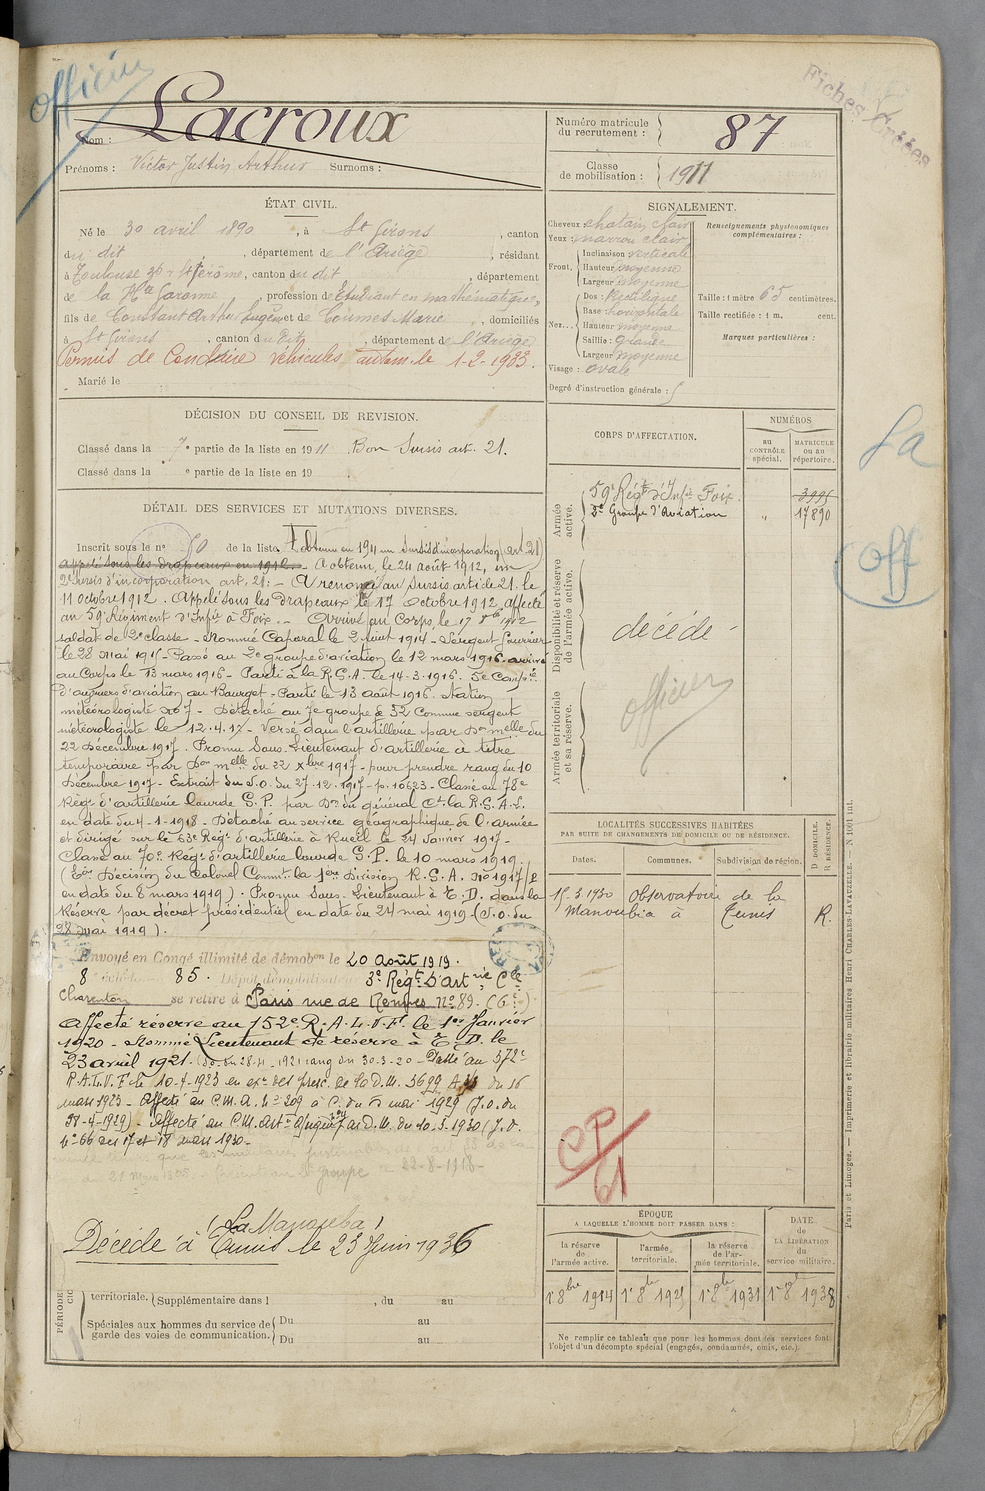 officier
Fiches Créées
Nom : Lacroux
Prénoms : Victor Justin Arthur Surnoms :
Numéro matricule du recrutement : 87
Classe de mobilisation : 1911
ÉTAT CIVIL.
Né le 30 avril 1890, à St Girons, canton
du dit, département de l'Ariège, résidant
à Toulouse 30 r St Jérôme, canton du dit, département
de la Hte Garonne, profession de Etudiant en mathématiques,
fils de Constant Arthur Eugène et de Coumes Marie, domiciliés
à St Girons, canton du dit, département de l'Ariège
Permis de Conduire véhicules autom. le 1-2-1933.
Marié le
SIGNALEMENT.
Cheveux : chatain clair
Yeux : marron clair
Front, Inclinaison verticale
Hauteur moyenne
Largeur moyenne
Nez... Dos : Rectiligne
Base : horizontale
Hauteur moyenne
Saillie : grande
Largeur moyenne
Visage : ovale
Renseignements physionomiques complémentaires :
Taille : 1 mètre 65 centimètres.
Taille rectifiée : 1 m. cent.
Marques particulières :
Degré d'instruction générale : 5
DÉCISION DU CONSEIL DE REVISION.
Classé dans la 7e partie de la liste en 1911. Bon Sursis art. 21.
Classé dans la e partie de la liste en 19
DÉTAIL DES SERVICES ET MUTATIONS DIVERSES.
Inscrit sous le n° 50 de la liste. A obtenu en 1911 un Sursis d'incorporation (art 21)
appelé sous les drapeaux en 1912. - A obtenu, le 24 août 1912, un
2e sursis d'incorporation art. 21 :- A renoncé au sursis article 21. le
11 octobre 1912. Appelé sous les drapeaux le 17 octobre 1912, affecté
au 59e Régiment d'Infie à Foix. - Arrivé au Corps, le 17 8bre 1912
soldat de 2e classe - Nommé Caporal le 2 Août 1914 - Sergent fourrier
le 28 mai 1915 - Passé au 2e groupe d'aviation le 12 mars 1916. arrivé
au Corps le 13 mars 1916 - Parti à la R.G.A. le 14-3-1916. 5e Compie
d'ouvriers d'aviation au Bourget - Parti le 13 août 1916. Station
météorologiste No 7 - Détaché au 7e groupe de 32 comme sergent
météorologiste le 12.4.17 - Versé dans l'artillerie par Don melle du
22 Décembre 1917. Promu Sous-Lieutenant d'artillerie à titre
temporaire par Don melle du 22 Xbre 1917 - pour prendre rang du 10
Décembre 1917 - Extrait du J.O. du 27.12.1917 - p. 10623 - Classé au 78e
Régt d'artillerie lourde G.P. par Don du général Ct la R.G.A.L.
en date du 4-1-1918 - Détaché au service géographique de l'armée
et dirigé sur le 63e Régt d'artillerie à Rueil le 24 Janvier 1917 -
Classé au 70e Régt d'artillerie lourde G.P. le 10 mars 1919.
(Son Décision du Colonel Commt la 1ere Division R.G.A. No 1917/P
en date du 8 mars 1919). Promu Sous-Lieutenant à T.D. dans la
Réserve par décret présidentiel en date du 24 mai 1919 (J.O. du
28 mai 1919).
Envoyé en Congé illimité de démobon le 20 août 1919.
8e échelon 85. Dépôt démobilisateur 3e Regt d'Artrie Cle
Charenton se retire à Paris rue de Rennes No 89. (6e)
Affecté réserve au 152e R.A.L.V.F. le 1er Janvier
1920 - Nommé Lieutenant de réserve à T.D. le
23 avril 1921. (J.O. du 28-4-1921 rang du 30-3-20 - Passé au 372e
R.A.L.V.F. le 10-4-1923 en exon des presc. de la D.M. 5699 A 3/3 du 16
mars 1923 - Affecté au C.M.A. No 209 à C. du 5 mai 1929 (J.O. du
28-4-1929). Affecté au C.M. Artie D.M. du 10-3-1930 (J.O.
No 66 des 17 et 18 mars 1930 -
groupe 22-8-1918 -
(La Manouba)
Décédé à Tunis le 23 Juin 1936
PÉRIODE
territoriale. (Supplémentaire dans l , du au
Spéciales aux hommes du service de garde des voies de communication. Du au
Du au
CORPS D'AFFECTATION.
NUMÉROS
au contrôle spécial.
matricule ou au répertoire.
Armée active.
59e Régt d'Infie Foix. 3995
2e Groupe d'Aviation " 17890
Disponibilité et réserve de l'armée active.
décédé
Armée territoriale et sa réserve.
officier
La
Off
LOCALITÉS SUCCESSIVES HABITÉES
PAR SUITE DE CHANGEMENTS DE DOMICILE OU DE RÉSIDENCE.
Dates. Communes. Subdivision de région. D DOMICILE. R RÉSIDENCE.
15.3.1930 Observatoire de la
Manoubia à Tunis R.
CP/61
ÉPOQUE
A LAQUELLE L'HOMME DOIT PASSER DANS :
la réserve de l'armée active.
l'armée territoriale.
la réserve de l'armée territoriale.
DATE de LA LIBÉRATION du service militaire.
1er 8bre 1914 1er 8bre 1921 1er 8bre 1931 1er 8bre 1938
Ne remplir ce tableau que pour les hommes dont les services font
l'objet d'un décompte spécial (engagés, condamnés, omis, etc.).
Paris et Limoges. — Imprimerie et librairie militaires Henri CHARLES-LAVAUZELLE. — N 1001 int.